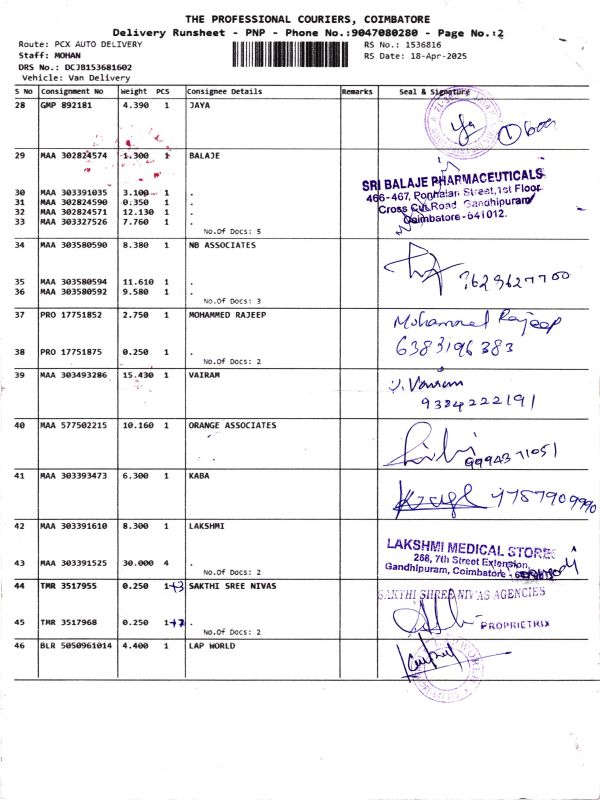 THE PROFESSIONAL COURIERS, COIMBATORE
Delivery Runsheet - PNP - Phone No.:9047080280 - Page No.:2
Route: PCX AUTO DELIVERY RS No.: 1536816
Staff: MOHAN RS Date: 18-Apr-2025
DRS No.: DCJB153681602
Vehicle: Van Delivery
S No Consignment No Weight PCS Consignee Details Remarks Seal & Signature
28 GMP 892181 4.390 1 JAYA
29 MAA 302824574 1.300 1 BALAJE
SRI BALAJE PHARMACEUTICALS
466-467, Ponnaian Street, 1st Floor
Cross Cut Road, Gandhipuram
Coimbatore - 641012.
30 MAA 303391035 3.100 1 .
31 MAA 302824590 0.350 1 .
32 MAA 302824571 12.130 1 .
33 MAA 303327526 7.760 1 .
No.Of Docs: 5
34 MAA 303580590 8.380 1 NB ASSOCIATES
35 MAA 303580594 11.610 1 .
36 MAA 303580592 9.580 1 .
No.Of Docs: 3
37 PRO 17751852 2.750 1 MOHAMMED RAJEEP Mohammed Rajeep
38 PRO 17751875 0.250 1 . 6383196383
No.Of Docs: 2
39 MAA 303493286 15.430 1 VAIRAM
9384222191
40 MAA 577502215 10.160 1 ORANGE ASSOCIATES
9994371051
41 MAA 303393473 6.300 1 KABA
9757909990
42 MAA 303391610 8.300 1 LAKSHMI
LAKSHMI MEDICAL STORES
268, 7th Street Extension,
Gandhipuram, Coimbatore -
43 MAA 303391525 30.000 4 .
44 TMR 3517955 0.250 1+3 SAKTHI SREE NIVAS
SAKTHI SHREE NIVAS AGENCIES
45 TMR 3517968 0.250 1 . PROPRIETRIX
No.Of Docs: 2
46 BLR 5050961014 4.400 1 LAP WORLD